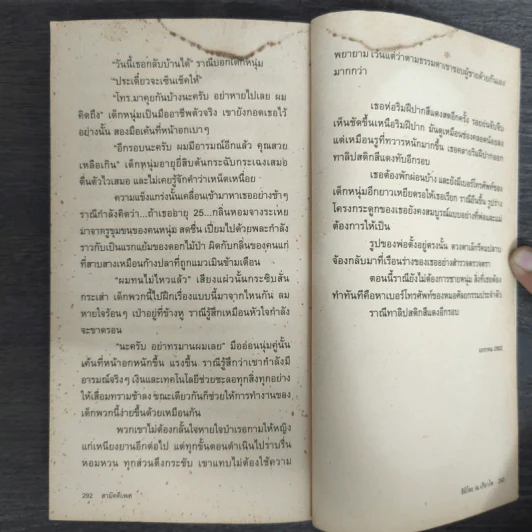 "วันนี้เธอกลับบ้านได้" ราณีบอกเด็กหนุ่ม
"ประเดี๋ยวจะเซ็นเช็คให้"
"โทร.มาคุยกันบ้างนะครับ อย่าหายไปเลย ผม
คิดถึง" เด็กหนุ่มเป็นมืออาชีพตัวจริง เขายังกอดเธอไว้
อย่างนั้น สองมือเค้นที่หน้าอกเบาๆ
"อีกรอบนะครับ ผมมีอารมณ์อีกแล้ว คุณสวย
เหลือเกิน" เด็กหนุ่มอายุยี่สิบต้นกระฉับกระเฉงเสมอ
ตื่นตัวไวเสมอ และไม่เคยรู้จักคำว่าเหน็ดเหนื่อย
ความแข็งแกร่งนั้นเคลื่อนเข้ามาหาเธออย่างช้าๆ
ราณีกำลังคิดว่า...ถ้าเธออายุ 25...กลิ่นหอมจางระเหย
มาจากครูขุมขนของคนหนุ่ม สดชื่น เปี่ยมไปด้วยพละกำลัง
ราวกับเป็นแรกแย้มของดอกไม้ป่า ผิดกับกลิ่นของคนแก่
ที่สาบสางเหมือนก้างปลาที่ถูกแมวเมินข้ามเดือน
"ผมทนไม่ไหวแล้ว" เสียงแผ่วนั้นกระซิบสั่น
กระเส่า เด็กพวกนี้ไปฝึกเรื่องแบบนี้มาจากไหนกัน ลม
หายใจร้อนๆ เป่าอยู่ที่ข้างหู ราณีรู้สึกเหมือนหัวใจกำลัง
จะขาดรอน
"นะครับ อย่าทรมานผมเลย" มืออ่อนนุ่มคู่นั้น
เค้นที่หน้าอกหนักขึ้น แรงขึ้น ราณีรู้สึกว่าเธอกำลังมี
อารมณ์จริงๆ เงินและเทคโนโลยีช่วยชะลอทุกสิ่งทุกอย่าง
ให้เสื่อมทรามช้าลง ขณะเดียวกันก็ช่วยให้การทำงานของ
เด็กพวกนี้ง่ายขึ้นด้วยเหมือนกัน
พวกเขาไม่ต้องกลั้นใจหายใจบำเรอกามให้หญิง
แก่เหนียงยานอีกต่อไป แต่ทุกขั้นตอนดำเนินไปราบรื่น
หอมหวน ทุกส่วนตึงกระชับ เขาแทบไม่ต้องใช้ความ
292 สามัคคีเพศ
พยายาม เว้นแต่ว่าตามธรรมดาเขาชอบผู้ชายด้วยกันเอง
มากกว่า
เธอห่อริมฝีปากสีแดงสดอีกครั้ง รอยย่นจีบ
เห็นชัดขึ้นเหนือริมฝีปาก มันดูเหมือนช่องคลอดน้อยลง
แต่เหมือนรูที่ทวารหนักมากขึ้น เธอคลายริมฝีปากออก
ทาลิปสติกสีแดงทับอีกรอบ
เธอต้องพักผ่อนบ้าง และยังมีเบอร์โทรศัพท์ของ
เด็กหนุ่มอีกยาวเหยียดรอให้เธอเรียก ราณียืนขึ้น รูปร่าง
โครงกระดูกของเธอยังคงสมบูรณ์แบบอย่างที่พ่อและแม่
ต้องการให้เป็น
รูปของพ่อตั้งอยู่ตรงนั้น ดวงตาเล็กรีคมปลาบ
จ้องกลับมาที่เรือนร่างของเธออย่างสำรวจตรวจตรา
ตอนนี้ราณียังไม่ต้องการชายหนุ่ม สิ่งที่เธอต้อง
ทำทันทีคือหาเบอร์โทรศัพท์ของหมอศัลยกรรมประจำตัว
ราณีทาลิปสติกสีแดงอีกรอบ